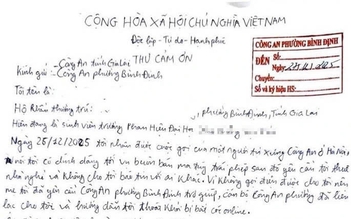 CỘNG HÒA XÃ HỘI CHỦ NGHĨA VIỆT NAM
Độc lập - Tự do - Hạnh phúc
THƯ CẢM ƠN
CÔNG AN PHƯỜNG BÌNH ĐỊNH
ĐẾN Số:
Ngày:
Chuyên:
Số và ký hiệu HS:
Kính gửi: - Công An tỉnh Gia Lai
- Công An phường Bình Định
Tôi tên là:
Hộ khẩu thường trú: , phường Bình Định, Tỉnh Gia Lai
Hiện đang là sinh viên trường
Ngày 25/12/2025 tôi nhận được cuộc gọi của một người tự xưng Công An ở Hà Nội
nói tôi có dính dáng tới vụ buôn bán ma túy trái phép sau đó yêu cầu tôi thuê
nhà nghỉ và không cho tôi báo tin với ai khác. Vì không gọi điện được cho tôi nên
mẹ tôi đã yêu cầu Công An phường Bình Định trợ giúp, cán bộ Công An phường đã liên
lạc cho tôi và hướng dẫn tôi thoát khỏi bị bắt cóc online.